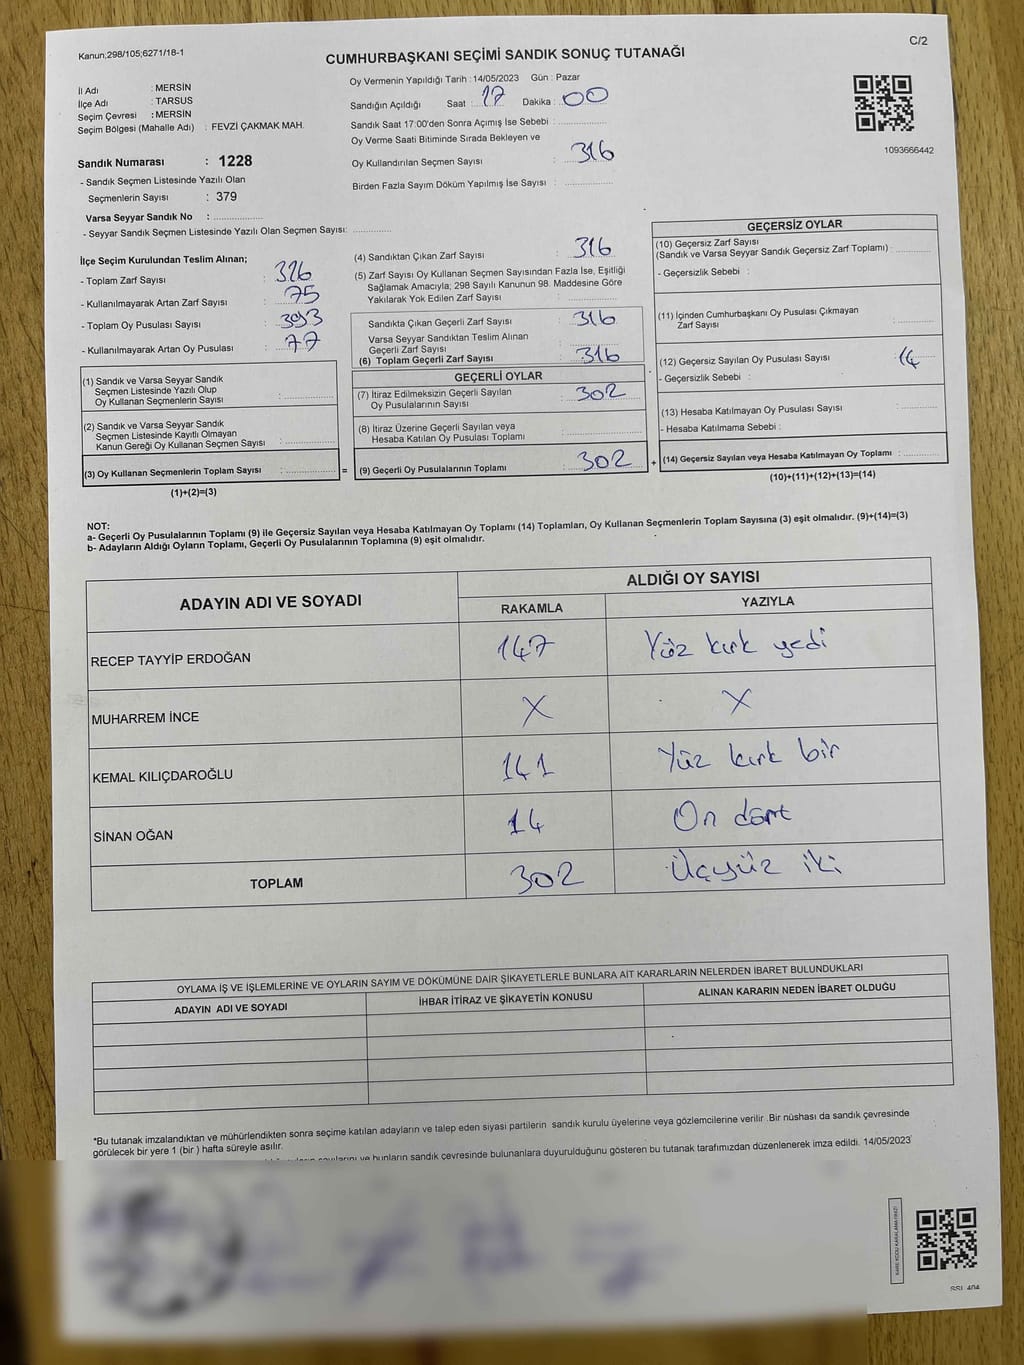 Kanun;298/105;6271/18-1
C/2
CUMHURBAŞKANI SEÇİMİ SANDIK SONUÇ TUTANAĞI
İl Adı : MERSİN
İlçe Adı : TARSUS
Seçim Çevresi : MERSİN
Seçim Bölgesi (Mahalle Adı) : FEVZİ ÇAKMAK MAH.
Sandık Numarası : 1228
- Sandık Seçmen Listesinde Yazılı Olan
Seçmenlerin Sayısı : 379
Varsa Seyyar Sandık No : ..................
- Seyyar Sandık Seçmen Listesinde Yazılı Olan Seçmen Sayısı: ..............
Oy Vermenin Yapıldığı Tarih : 14/05/2023 Gün : Pazar
Sandığın Açıldığı Saat : 17 Dakika : 00
Sandık Saat 17:00'den Sonra Açımış İse Sebebi : ..................
Oy Verme Saati Bitiminde Sırada Bekleyen ve
Oy Kullandırılan Seçmen Sayısı : 316
Birden Fazla Sayım Döküm Yapılmış İse Sayısı : ..................
1093666442
İlçe Seçim Kurulundan Teslim Alınan;
- Toplam Zarf Sayısı : 326
- Kullanılmayarak Artan Zarf Sayısı : 75
- Toplam Oy Pusulası Sayısı : 393
- Kullanılmayarak Artan Oy Pusulası : 77
(1) Sandık ve Varsa Seyyar Sandık
Seçmen Listesinde Yazılı Olup
Oy Kullanan Seçmenlerin Sayısı : ..................
(2) Sandık ve Varsa Seyyar Sandık
Seçmen Listesinde Kayıtlı Olmayan
Kanun Gereği Oy Kullanan Seçmen Sayısı : ..................
(3) Oy Kullanan Seçmenlerin Toplam Sayısı : .................. =
(1)+(2)=(3)
(4) Sandıktan Çıkan Zarf Sayısı : 316
(5) Zarf Sayısı Oy Kullanan Seçmen Sayısından Fazla İse, Eşitliği
Sağlamak Amacıyla; 298 Sayılı Kanunun 98. Maddesine Göre
Yakılarak Yok Edilen Zarf Sayısı : ..................
Sandıkta Çıkan Geçerli Zarf Sayısı : 316
Varsa Seyyar Sandıktan Teslim Alınan
Geçerli Zarf Sayısı : ..................
(6) Toplam Geçerli Zarf Sayısı : 316
GEÇERLİ OYLAR
(7) İtiraz Edilmeksizin Geçerli Sayılan
Oy Pusulalarının Sayısı : 302
(8) İtiraz Üzerine Geçerli Sayılan veya
Hesaba Katılan Oy Pusulası Toplamı : ..................
(9) Geçerli Oy Pusulalarının Toplamı : 302 +
GEÇERSİZ OYLAR
(10) Geçersiz Zarf Sayısı
(Sandık ve Varsa Seyyar Sandık Geçersiz Zarf Toplamı) : ..............
- Geçersizlik Sebebi :
(11) İçinden Cumhurbaşkanı Oy Pusulası Çıkmayan
Zarf Sayısı : ..............
(12) Geçersiz Sayılan Oy Pusulası Sayısı : 14
- Geçersizlik Sebebi :
(13) Hesaba Katılmayan Oy Pusulası Sayısı : ..............
- Hesaba Katılmama Sebebi :
(14) Geçersiz Sayılan veya Hesaba Katılmayan Oy Toplamı : ..............
(10)+(11)+(12)+(13)=(14)
NOT:
a- Geçerli Oy Pusulalarının Toplamı (9) ile Geçersiz Sayılan veya Hesaba Katılmayan Oy Toplamı (14) Toplamları, Oy Kullanan Seçmenlerin Toplam Sayısına (3) eşit olmalıdır. (9)+(14)=(3)
b- Adayların Aldığı Oyların Toplamı, Geçerli Oy Pusulalarının Toplamına (9) eşit olmalıdır.
ADAYIN ADI VE SOYADI
ALDIĞI OY SAYISI
RAKAMLA YAZIYLA
RECEP TAYYİP ERDOĞAN 147 Yüz kırk yedi
MUHARREM İNCE X X
KEMAL KILIÇDAROĞLU 141 Yüz kırk bir
SİNAN OĞAN 14 On dört
TOPLAM 302 Üçyüz iki
OYLAMA İŞ VE İŞLEMLERİNE VE OYLARIN SAYIM VE DÖKÜMÜNE DAİR ŞİKAYETLERLE BUNLARA AİT KARARLARIN NELERDEN İBARET BULUNDUKLARI
ADAYIN ADI VE SOYADI İHBAR İTİRAZ VE ŞİKAYETİN KONUSU ALINAN KARARIN NEDEN İBARET OLDUĞU
*Bu tutanak imzalandıktan ve mühürlendikten sonra seçime katılan adayların ve talep eden siyasi partilerin sandık kurulu üyelerine veya gözlemcilerine verilir .Bir nüshası da sandık çevresinde
görülecek bir yere 1 (bir ) hafta süreyle asılır.
ve bunların sandık çevresinde bulunanlara duyurulduğunu gösteren bu tutanak tarafımızdan düzenlenerek imza edildi. 14/05/2023